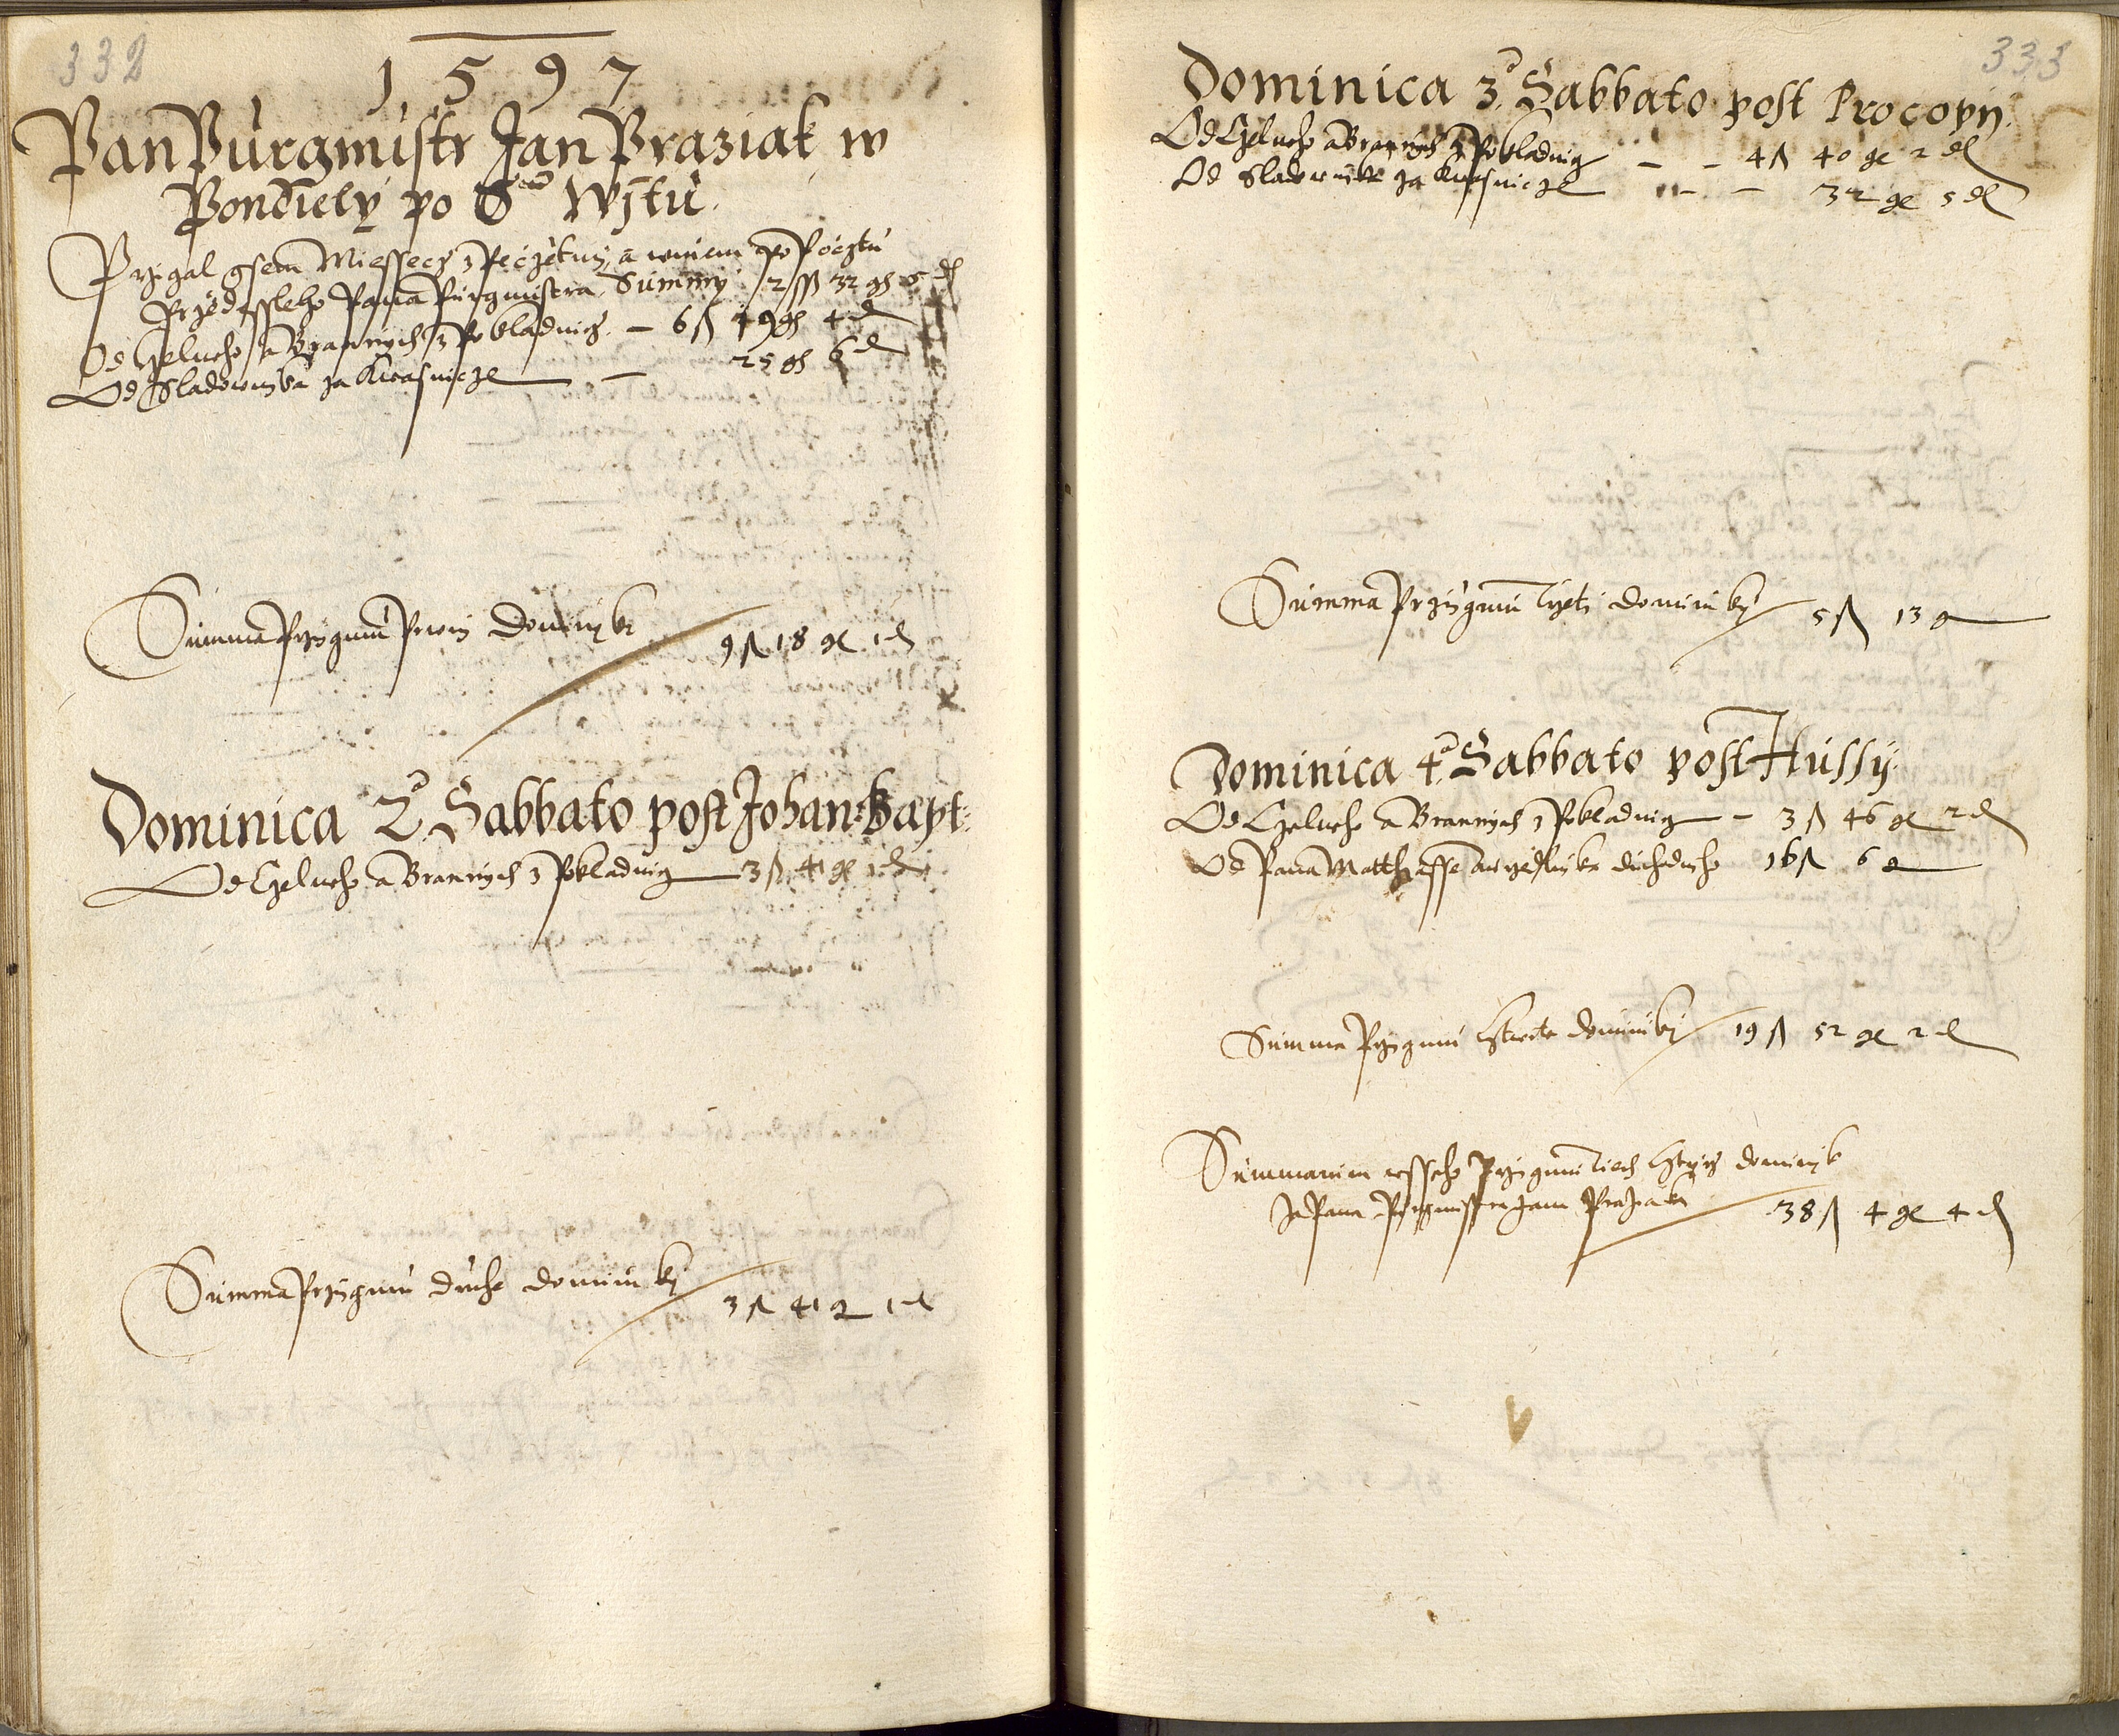 332
1597
Pan Purgmistr Jan Praziak w
Pondiely po S. Wjtu
Przigal gsem Miessecz z Peczetmi, a w niem po Pocztu
Przedessleho Pana Purgmistra Summy 2 ss 32 gs 5 d
Od Czelneho a Brannych z Pokladnicz — 6 ß 49 gs 4 d
Od Sladownika za Kwasnicze — 25 gs 6 d
Summa Przigmu Prwnj Dominiky 9 ß 18 g 1 d
Dominica 2a Sabbato post Johan: Bapt:
Od Czelneho a Brannych z Pokladnicz 3 ß 41 g 1 d
Summa Przigmu druhe dominiky 3 ß 41 g 1 d
333
Dominica 3a Sabbato post Procopij.
Od Czelneho a Brannych z Pokladnicz — — 4 ß 40 g 2 d
Od Sladownika za Kwasnicze — — 32 g 5 d
Summa Przigmu trzeti dominiky 5 ß 13 g
Dominica 4a Sabbato post Hussij.
Od Czelneho a Brannych z Pokladnicz — 3 ß 46 g 2 d
Od Pana Matthiasse duchodnjho 16 ß 6 g
Summa Przigmu cztwrte dominiky 19 ß 52 g 2 d
Summarum wsseho Przigmu tiech cztyrz dominik
Za Pana Purgmistra Jana Praziaka 38 ß 4 g 4 d